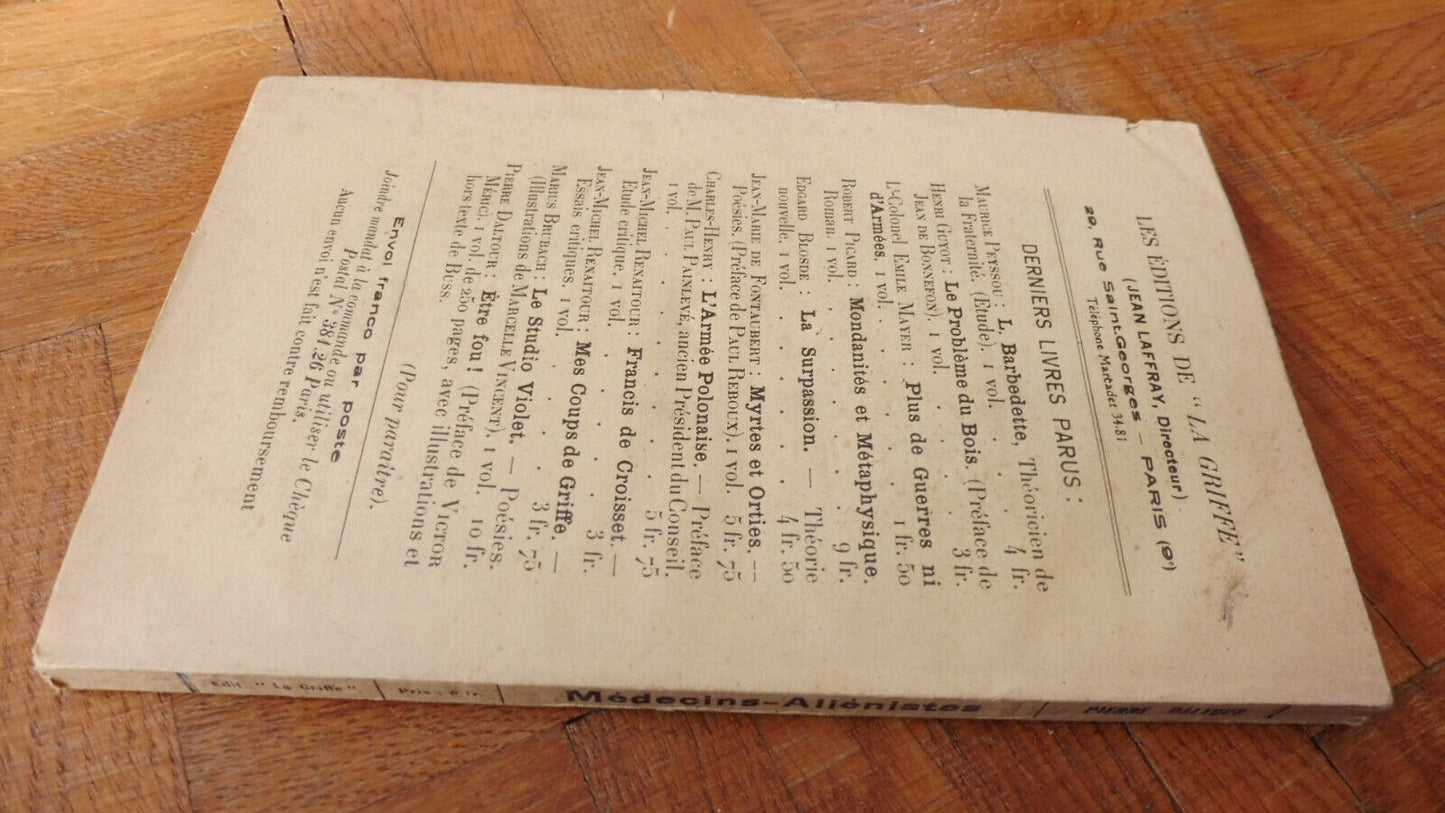 LES ÉDITIONS DE “LA GRIFFE”
(JEAN LAFFRAY, Directeur)
29, Rue Saint-Georges — PARIS (9e)
Téléphone Marcadet 34.81
DERNIERS LIVRES PARUS :
MAURICE PEYSSOU : L. Barbedette, Théoricien de
la Fraternité. (Etude). 1 vol. . . . 4 fr.
HENRI GUYOT : Le Problème du Bois. (Préface de
JEAN DE BONNEFON). 1 vol. . . . 3 fr.
Lt-Colonel EMILE MAYER : Plus de Guerres ni
d'Armées. 1 vol. . . . . . 1 fr. 50
ROBERT PICARD : Mondanités et Métaphysique.
Roman. 1 vol. . . . . . 9 fr.
EDGARD BLOSDE : La Surpassion. — Théorie
nouvelle. 1 vol. . . . . 4 fr. 50
JEAN-MARIE DE FONTAUBERT : Myrtes et Orties. —
Poésies. (Préface de PAUL REBOUX). 1 vol. 5 fr. 75
CHARLES-HENRY : L'Armée Polonaise. — Préface
de M. PAUL PAINLEVÉ, ancien Président du Conseil.
1 vol. . . . . . . 5 fr. 75
JEAN-MICHEL RENAITOUR : Francis de Croisset. —
Etude critique. 1 vol. . . . . 5 fr. 75
JEAN-MICHEL RENAITOUR : Mes Coups de Griffe. —
Essais critiques. 1 vol. . . . . 3 fr.
MARIUS BRUBACH : Le Studio Violet. — Poésies.
(Illustrations de MARCELLE VINCENT). 1 vol. 10 fr.
PIERRE DALTOUR : Être fou ! (Préface de VICTOR
MÉRIC). 1 vol. de 250 pages, avec illustrations et
hors texte de BUSS. (Pour paraître).
Envoi franco par poste
Joindre mandat à la commande ou utiliser le Chèque
Postal N° 381.26 Paris.
Aucun envoi n'est fait contre remboursement
Edit. "La Griffe"
Prix : 6 fr.
Médecins-Aliénistes
PIERRE DALTOUR